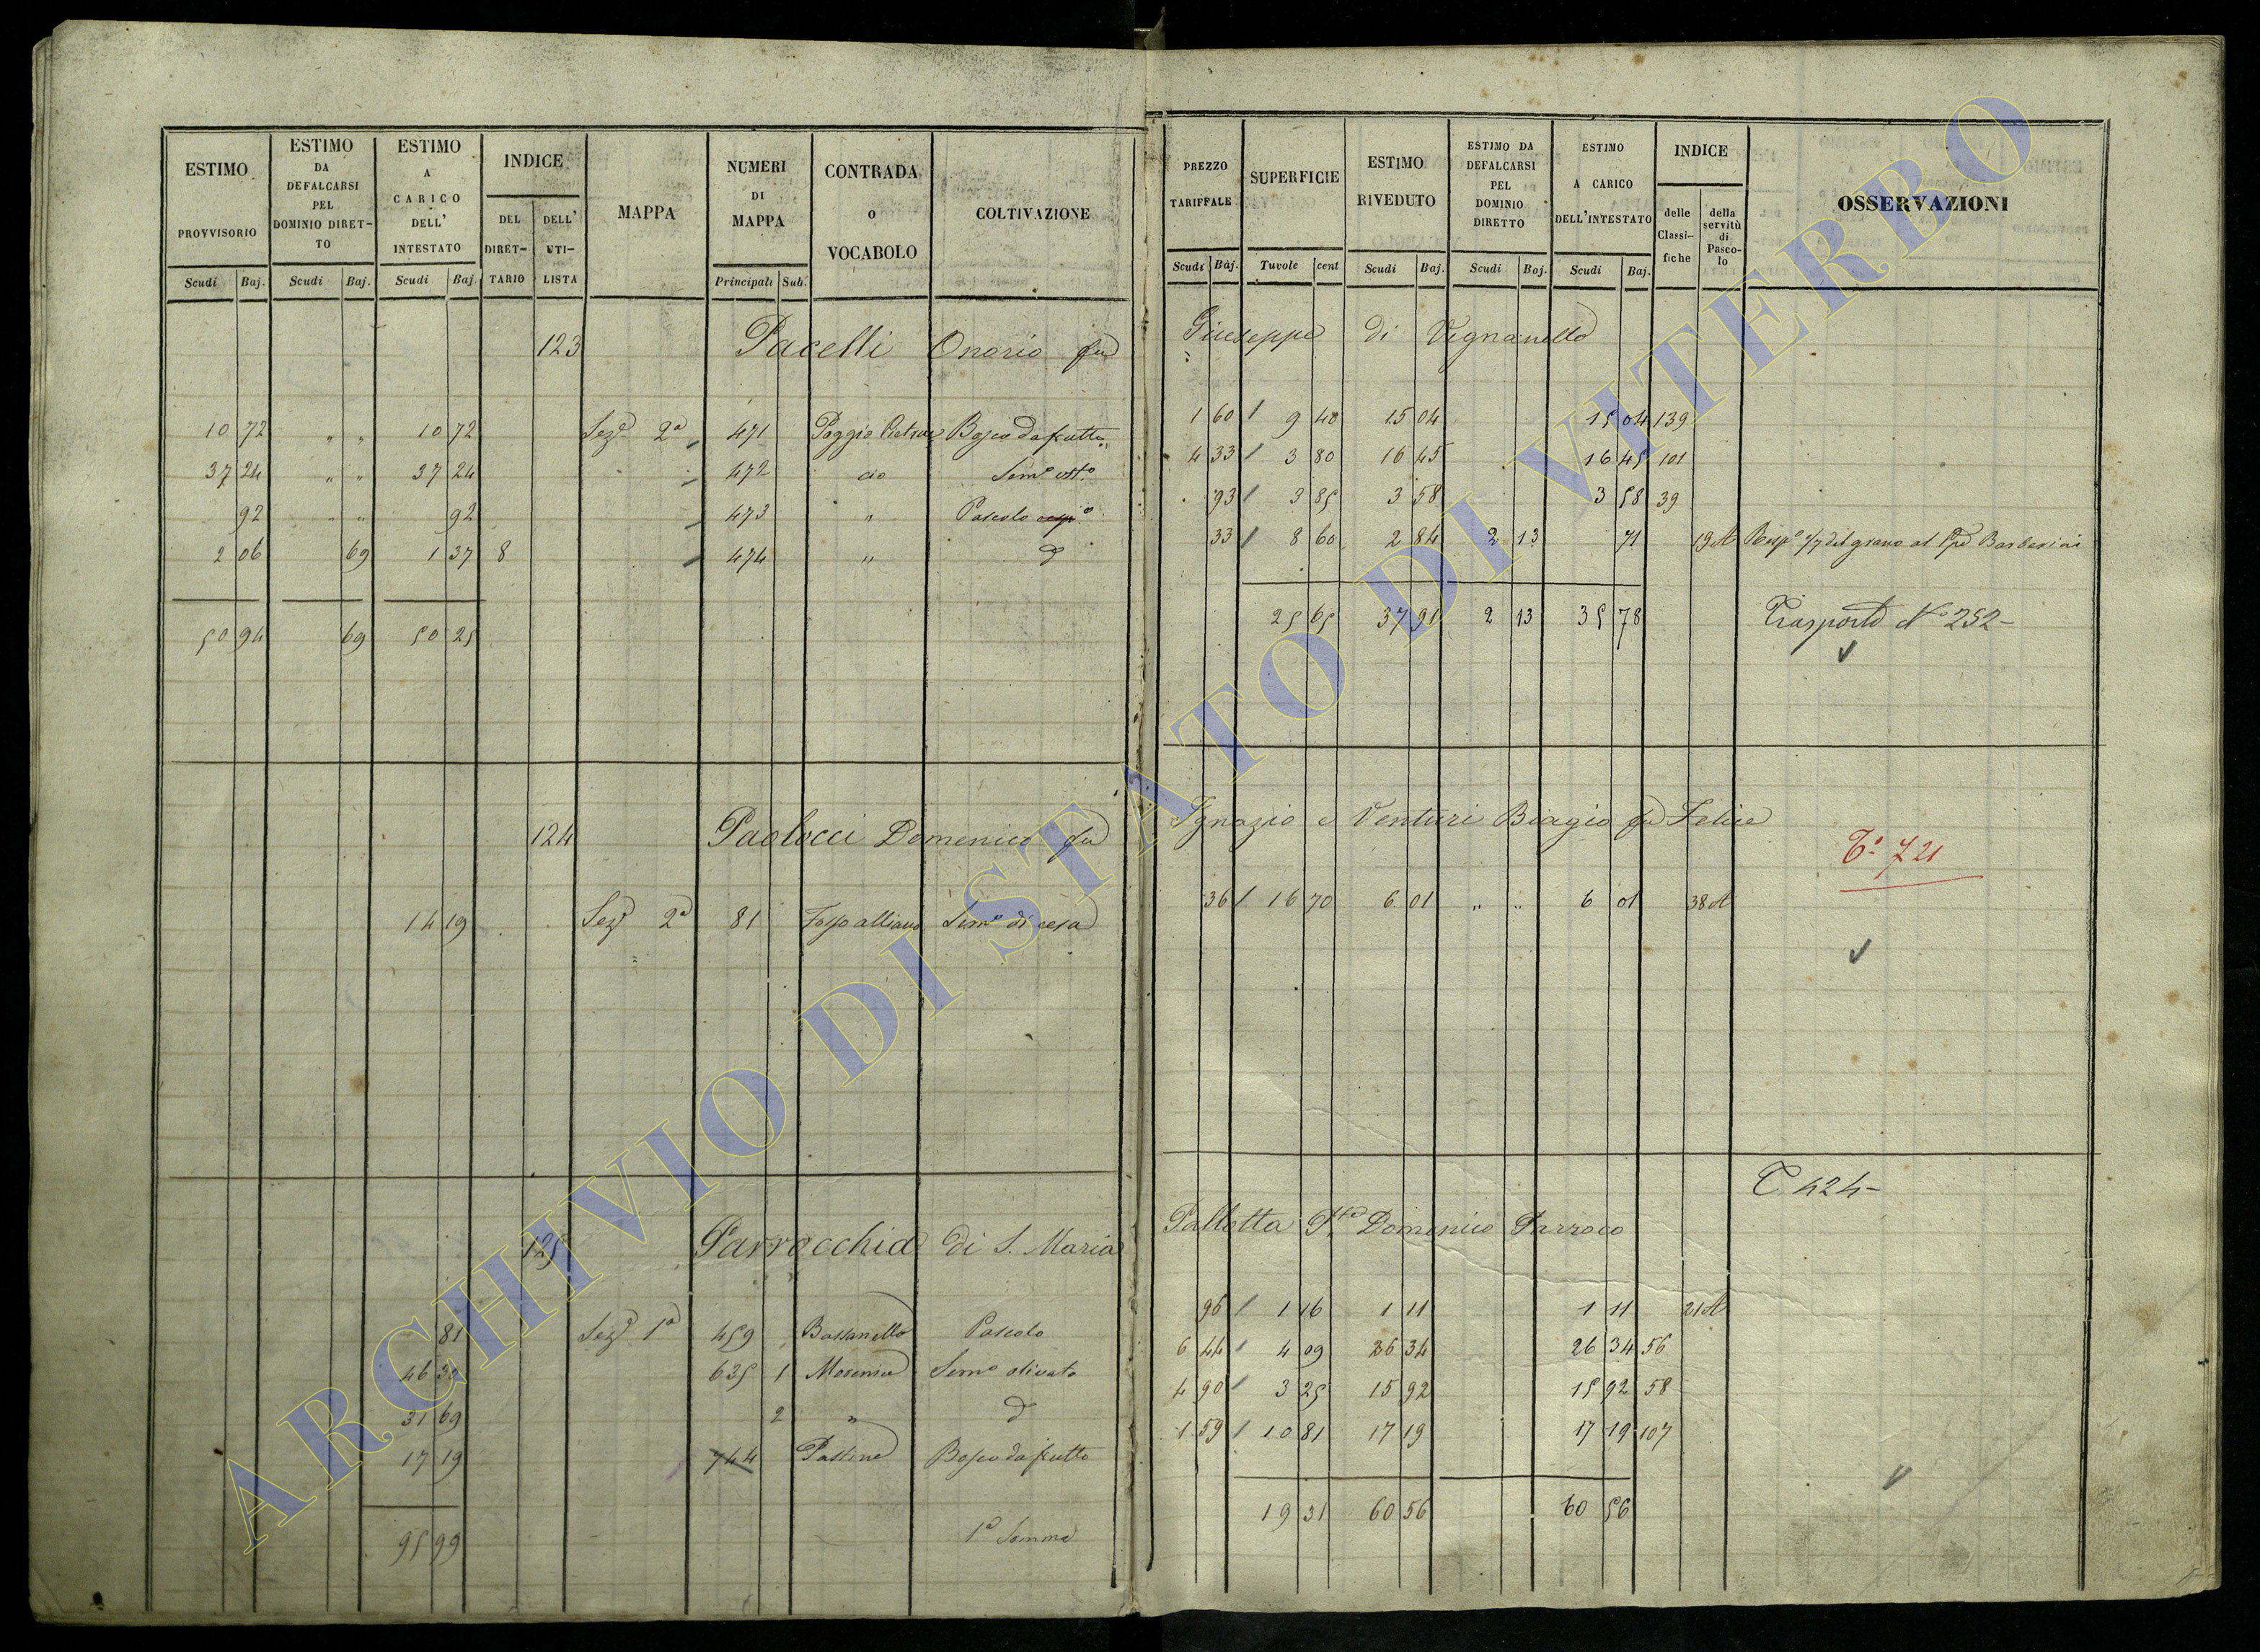 ESTIMO PROVVISORIO Scudi Baj.
ESTIMO DA DEFALCARSI PEL DOMINIO DIRETTO Scudi Baj.
ESTIMO A CARICO DELL' INTESTATO Scudi Baj.
INDICE DEL DIRETTARIO DELL' UTILISTA
MAPPA
NUMERI DI MAPPA Principali Sub.
CONTRADA o VOCABOLO
COLTIVAZIONE
PREZZO TARIFFALE Scudi Baj.
SUPERFICIE Tavole cent
ESTIMO RIVEDUTO Scudi Baj.
ESTIMO DA DEFALCARSI PEL DOMINIO DIRETTO Scudi Baj.
ESTIMO A CARICO DELL'INTESTATO Scudi Baj.
INDICE delle Classifiche della servitù di Pascolo
OSSERVAZIONI
123 Pacelli Onorio fu Giuseppe di Vignanello
10 72 " " 10 72 Seze 2a 471 Poggio Bosco da frutto 1 60 / 9 40 15 04 15 04 139
37 24 " " 37 24 472 Semo 4 33 / 3 80 16 45 16 45 101
92 " " 92 473 " Pascolo 93 / 3 85 3 58 3 58 39
2 06 69 1 37 8 474 " d 33 / 8 60 2 84 2 13 71 19 A Rispa 1/7 del grano al Barberini
50 94 69 50 25 25 65 37 91 2 13 35 78 Trasporto No 252
124 Paolocci Domenico fu Ignazio e Venturi Biagio fu Felice
To 721
14 19 Seze 2a 81 Fosso alliano Semo di cesa 36 / 16 70 6 01 " " 6 01 38 A
T 424
125 Parrocchia di S. Maria Pallotta Domenico Parroco
81 Seze 1a 459 Bassanello Pascolo 96 / 1 16 1 11 1 11 21 A
46 30 635 1 Semo olivato 6 44 / 4 09 26 34 26 34 56
31 69 2 " d 4 90 / 3 25 15 92 15 92 58
17 19 744 Bosco da frutto 1 59 / 10 81 17 19 17 19 107
95 99 1a Somma 19 31 60 56 60 56
ARCHIVIO DI STATO DI VITERBO